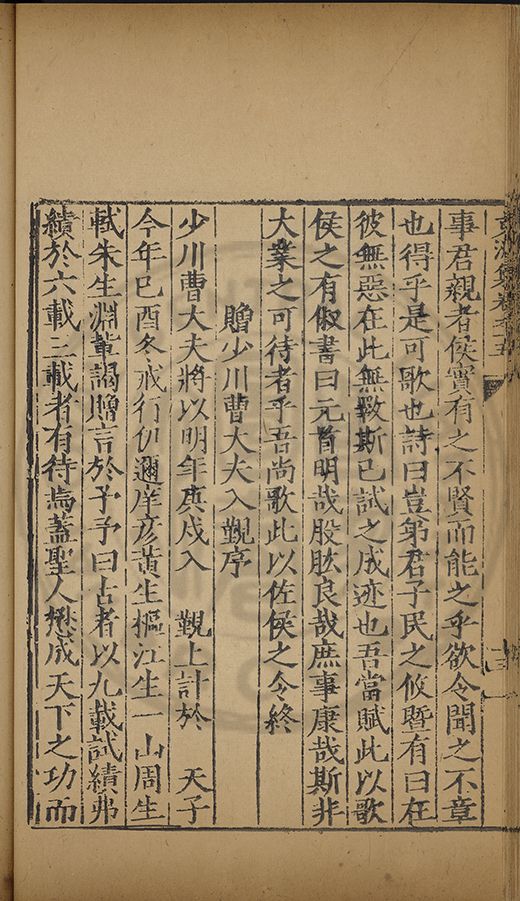 集卷之五
事君親者侯實有之不賢而能之乎欲令聞之不章
也得乎是可歌也詩曰豈弟君子民之攸暨有曰在
彼無惡在此無斁斯已試之成迹也吾當賦此以歌
侯之有俶書曰元首明哉股肱良哉庶事康哉斯非
大業之可待者乎吾尚歌此以佐侯之令終
贈少川曹大夫入覲序
少川曹大夫將以明年庚戍入 覲上計於 天子
今年巳酉冬戒行伊邇庠彥黃生樞江生一山周生
軾朱生淵軰謁贈言於予予曰古者以九載試績弗
績於六載三載者有待焉蓋聖人楙成天下之功而